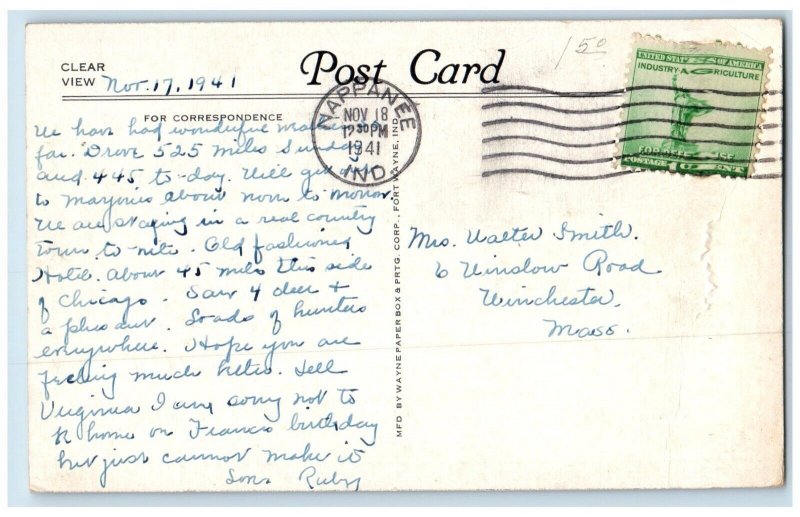 CLEAR
VIEW
Nov. 17, 1941
Post Card
FOR CORRESPONDENCE
150
NAPPANEE
NOV 18
12 30 PM
1941
IND.
UNITED STATES OF AMERICA
INDUSTRY AGRICULTURE
FOR DEFENSE
POSTAGE 1 CENTS
We have had wonderful
far. Drove 525 miles Sunday
and 445 to-day. Will get
to about noon to-morrow.
We are staying in a real country
town to-nite. Old fashioned
Hotel. About 45 miles this side
of Chicago. Saw 4 deer +
a pheasant. Loads of hunters
everywhere. Hope you are
feeling much better. Tell
Virginia I am sorry not to
be home on Francis birthday
but just cannot make it
Ruby
MFD BY WAYNE PAPER BOX & PRTG. CORP., FORT WAYNE, IND.
Mrs. Walter Smith.
6 Winslow Road
Winchester,
Mass.